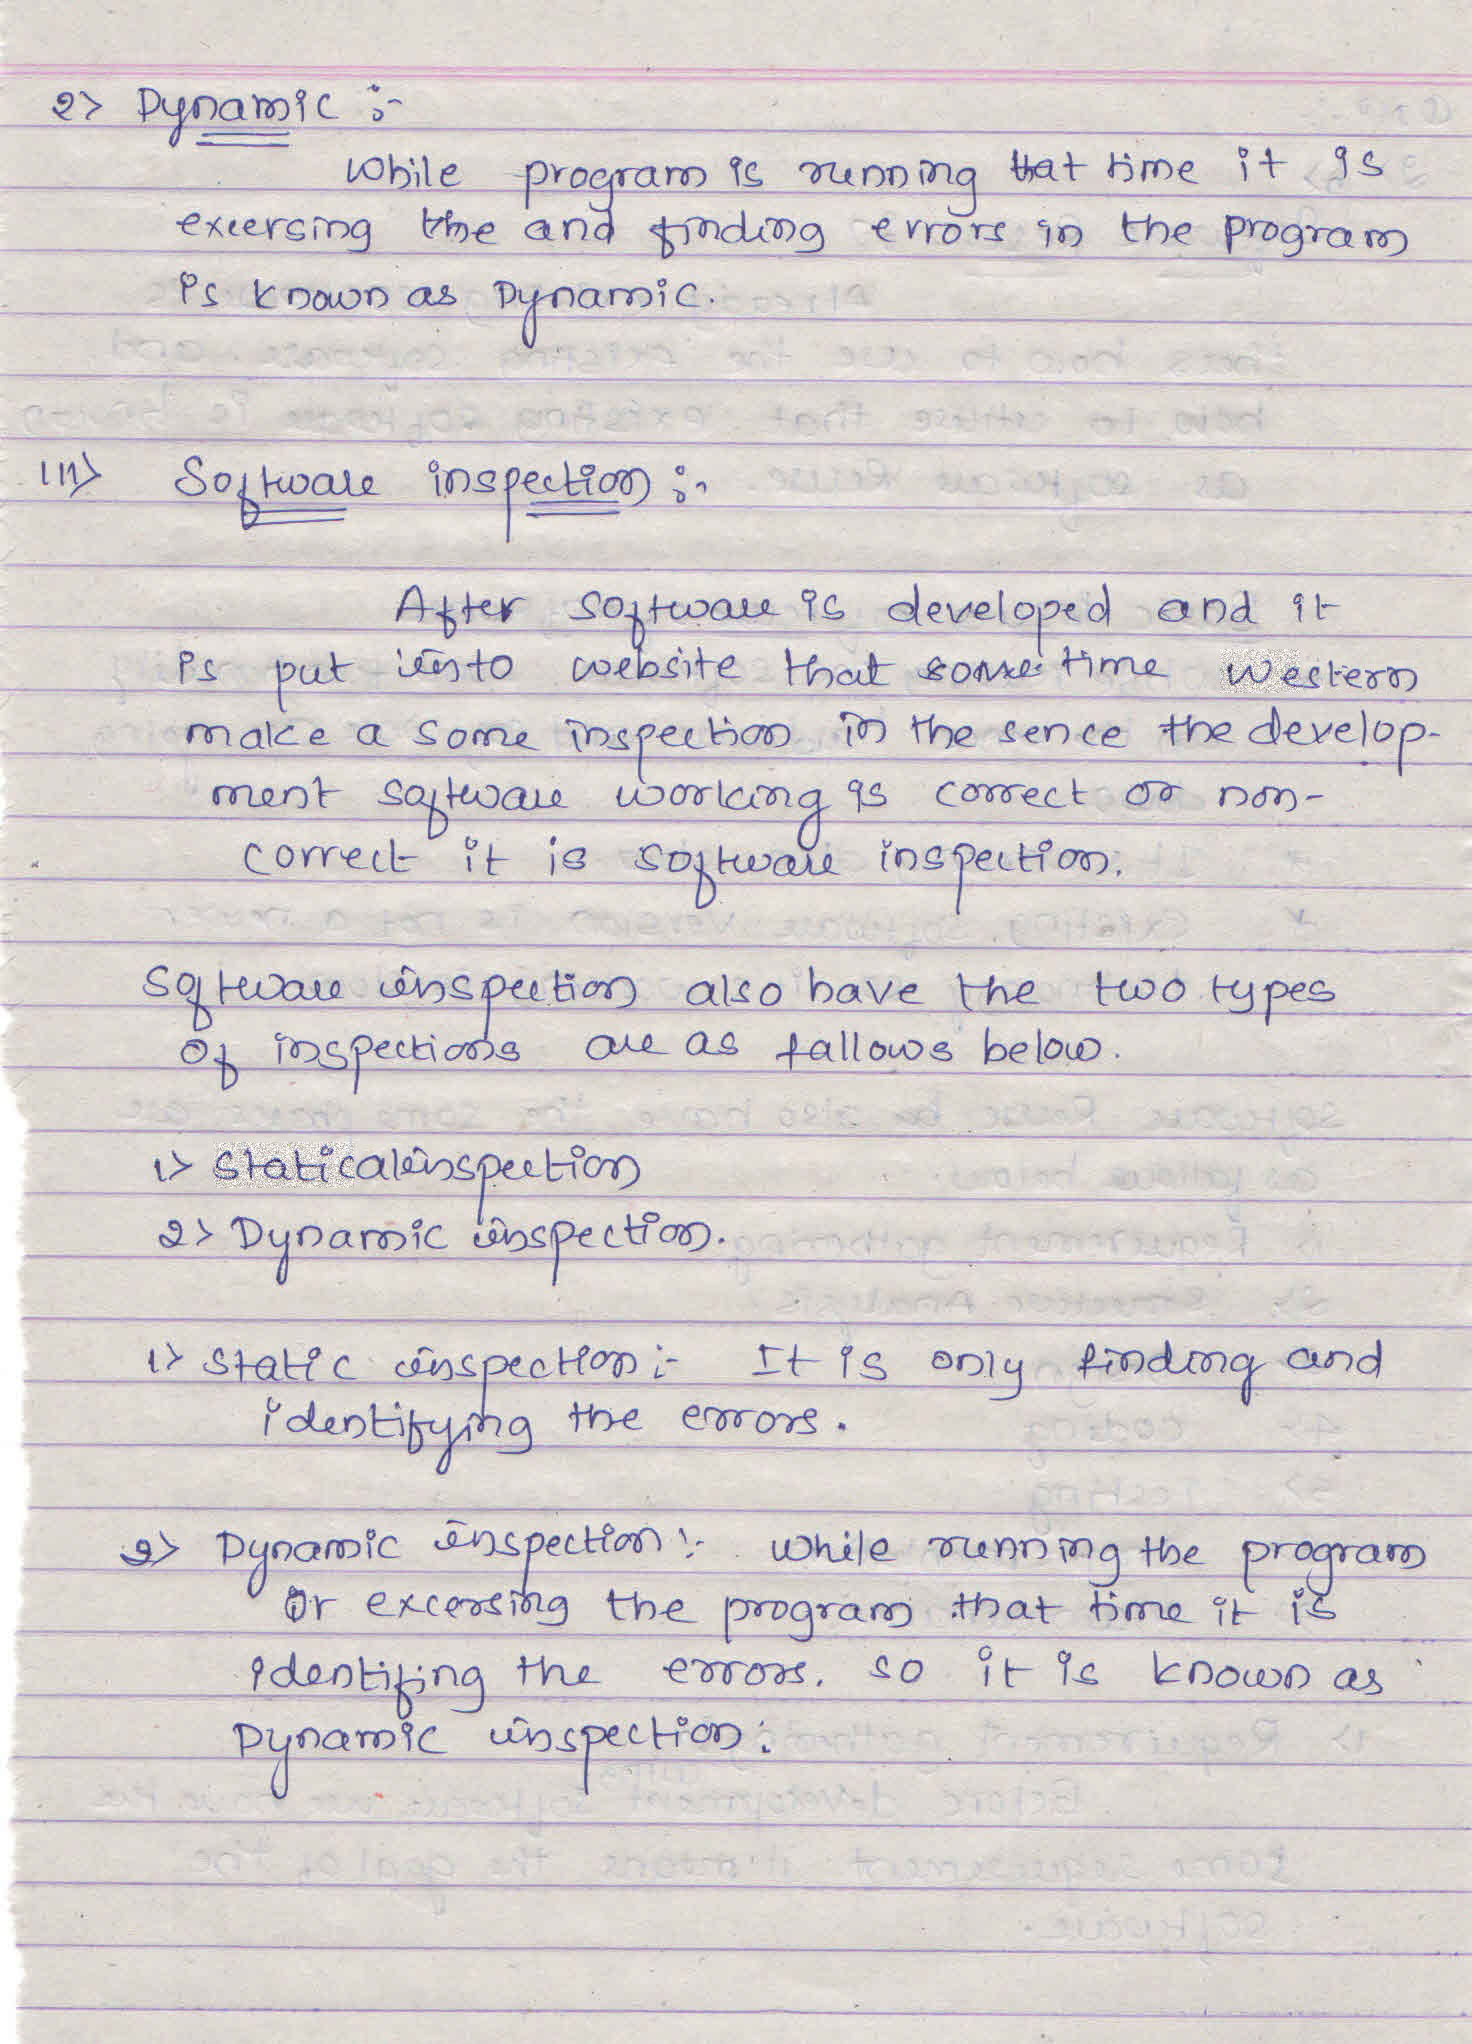 2> Dynamic :-
While program is running that time it is
excersing the and finding errors in the program
is known as Dynamic.
III> Software inspection :-
After software is developed and it
is put into website that some time Western
make a some inspection in the sence the develop-
ment software working is correct or non-
correct it is software inspection.
Software inspection also have the two types
of inspections are as fallows below.
1> Statical inspection
2> Dynamic inspection.
1> Static inspection :- It is only finding and
identifying the errors.
2> Dynamic inspection :- While running the program
Or excersing the program that time it is
identifing the errors. so it is known as
Dynamic inspection.